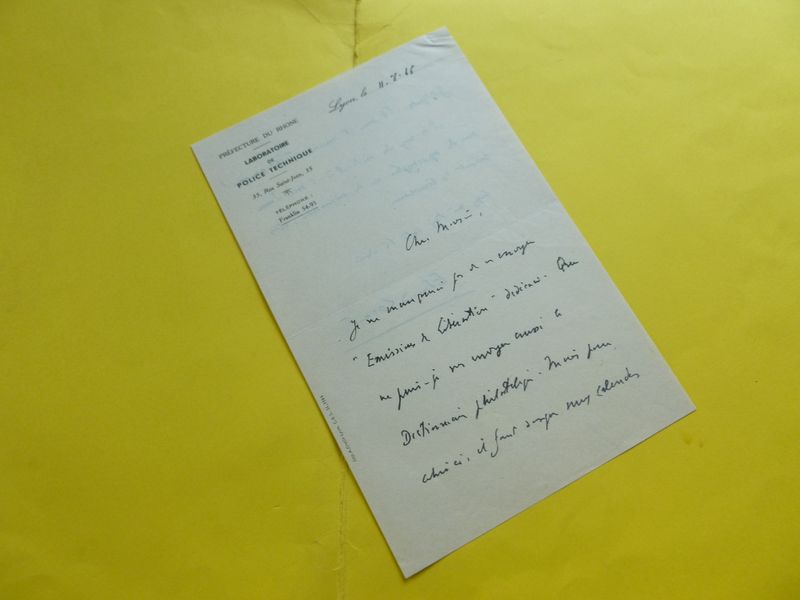 Lyon, le
PRÉFECTURE DU RHONE
LABORATOIRE
DE
POLICE TECHNIQUE
35, Rue Saint-Jean, 35
TÉLÉPHONE :
Franklin 54-91
Cher Monsieur,
Je ne manquerai pas de vous envoyer
"Emissions de Libération" dédicacé. Que
ne puis-je vous envoyer aussi le
Dictionnaire philatélique. Mais pour
celui-ci, il faut songer aux calendes